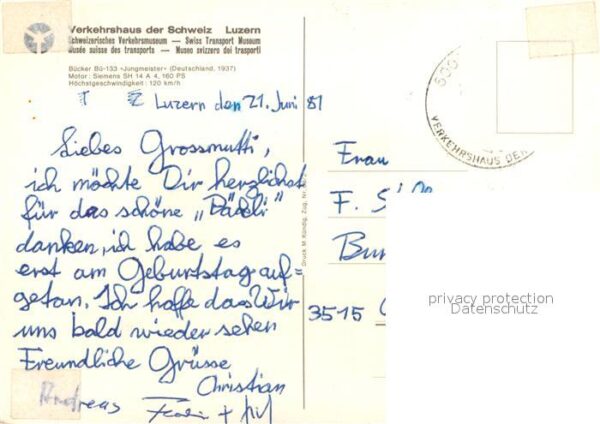 Verkehrshaus der Schweiz Luzern
Schweizerisches Verkehrsmuseum — Swiss Transport Museum
Musée suisse des transports — Museo svizzero dei trasporti
Bücker Bü-133 «Jungmeister» (Deutschland, 1937)
Motor: Siemens SH 14 A 4, 160 PS
Höchstgeschwindigkeit: 120 km/h
Luzern den 21. Juni 81
Liebes Grossmutti,
ich möchte Dir herzlichst
für das schöne „Päckli"
danken, ich habe es
erst am Geburtstag auf"
getan. Ich hoffe das Wir
uns bald wieder sehen
Freundliche Grüsse
Christian
Andreas
Druck M. Kündig, Zug, Nr.
VERKEHRSHAUS DER
Frau
F.
3515
privacy protection
Datenschutz